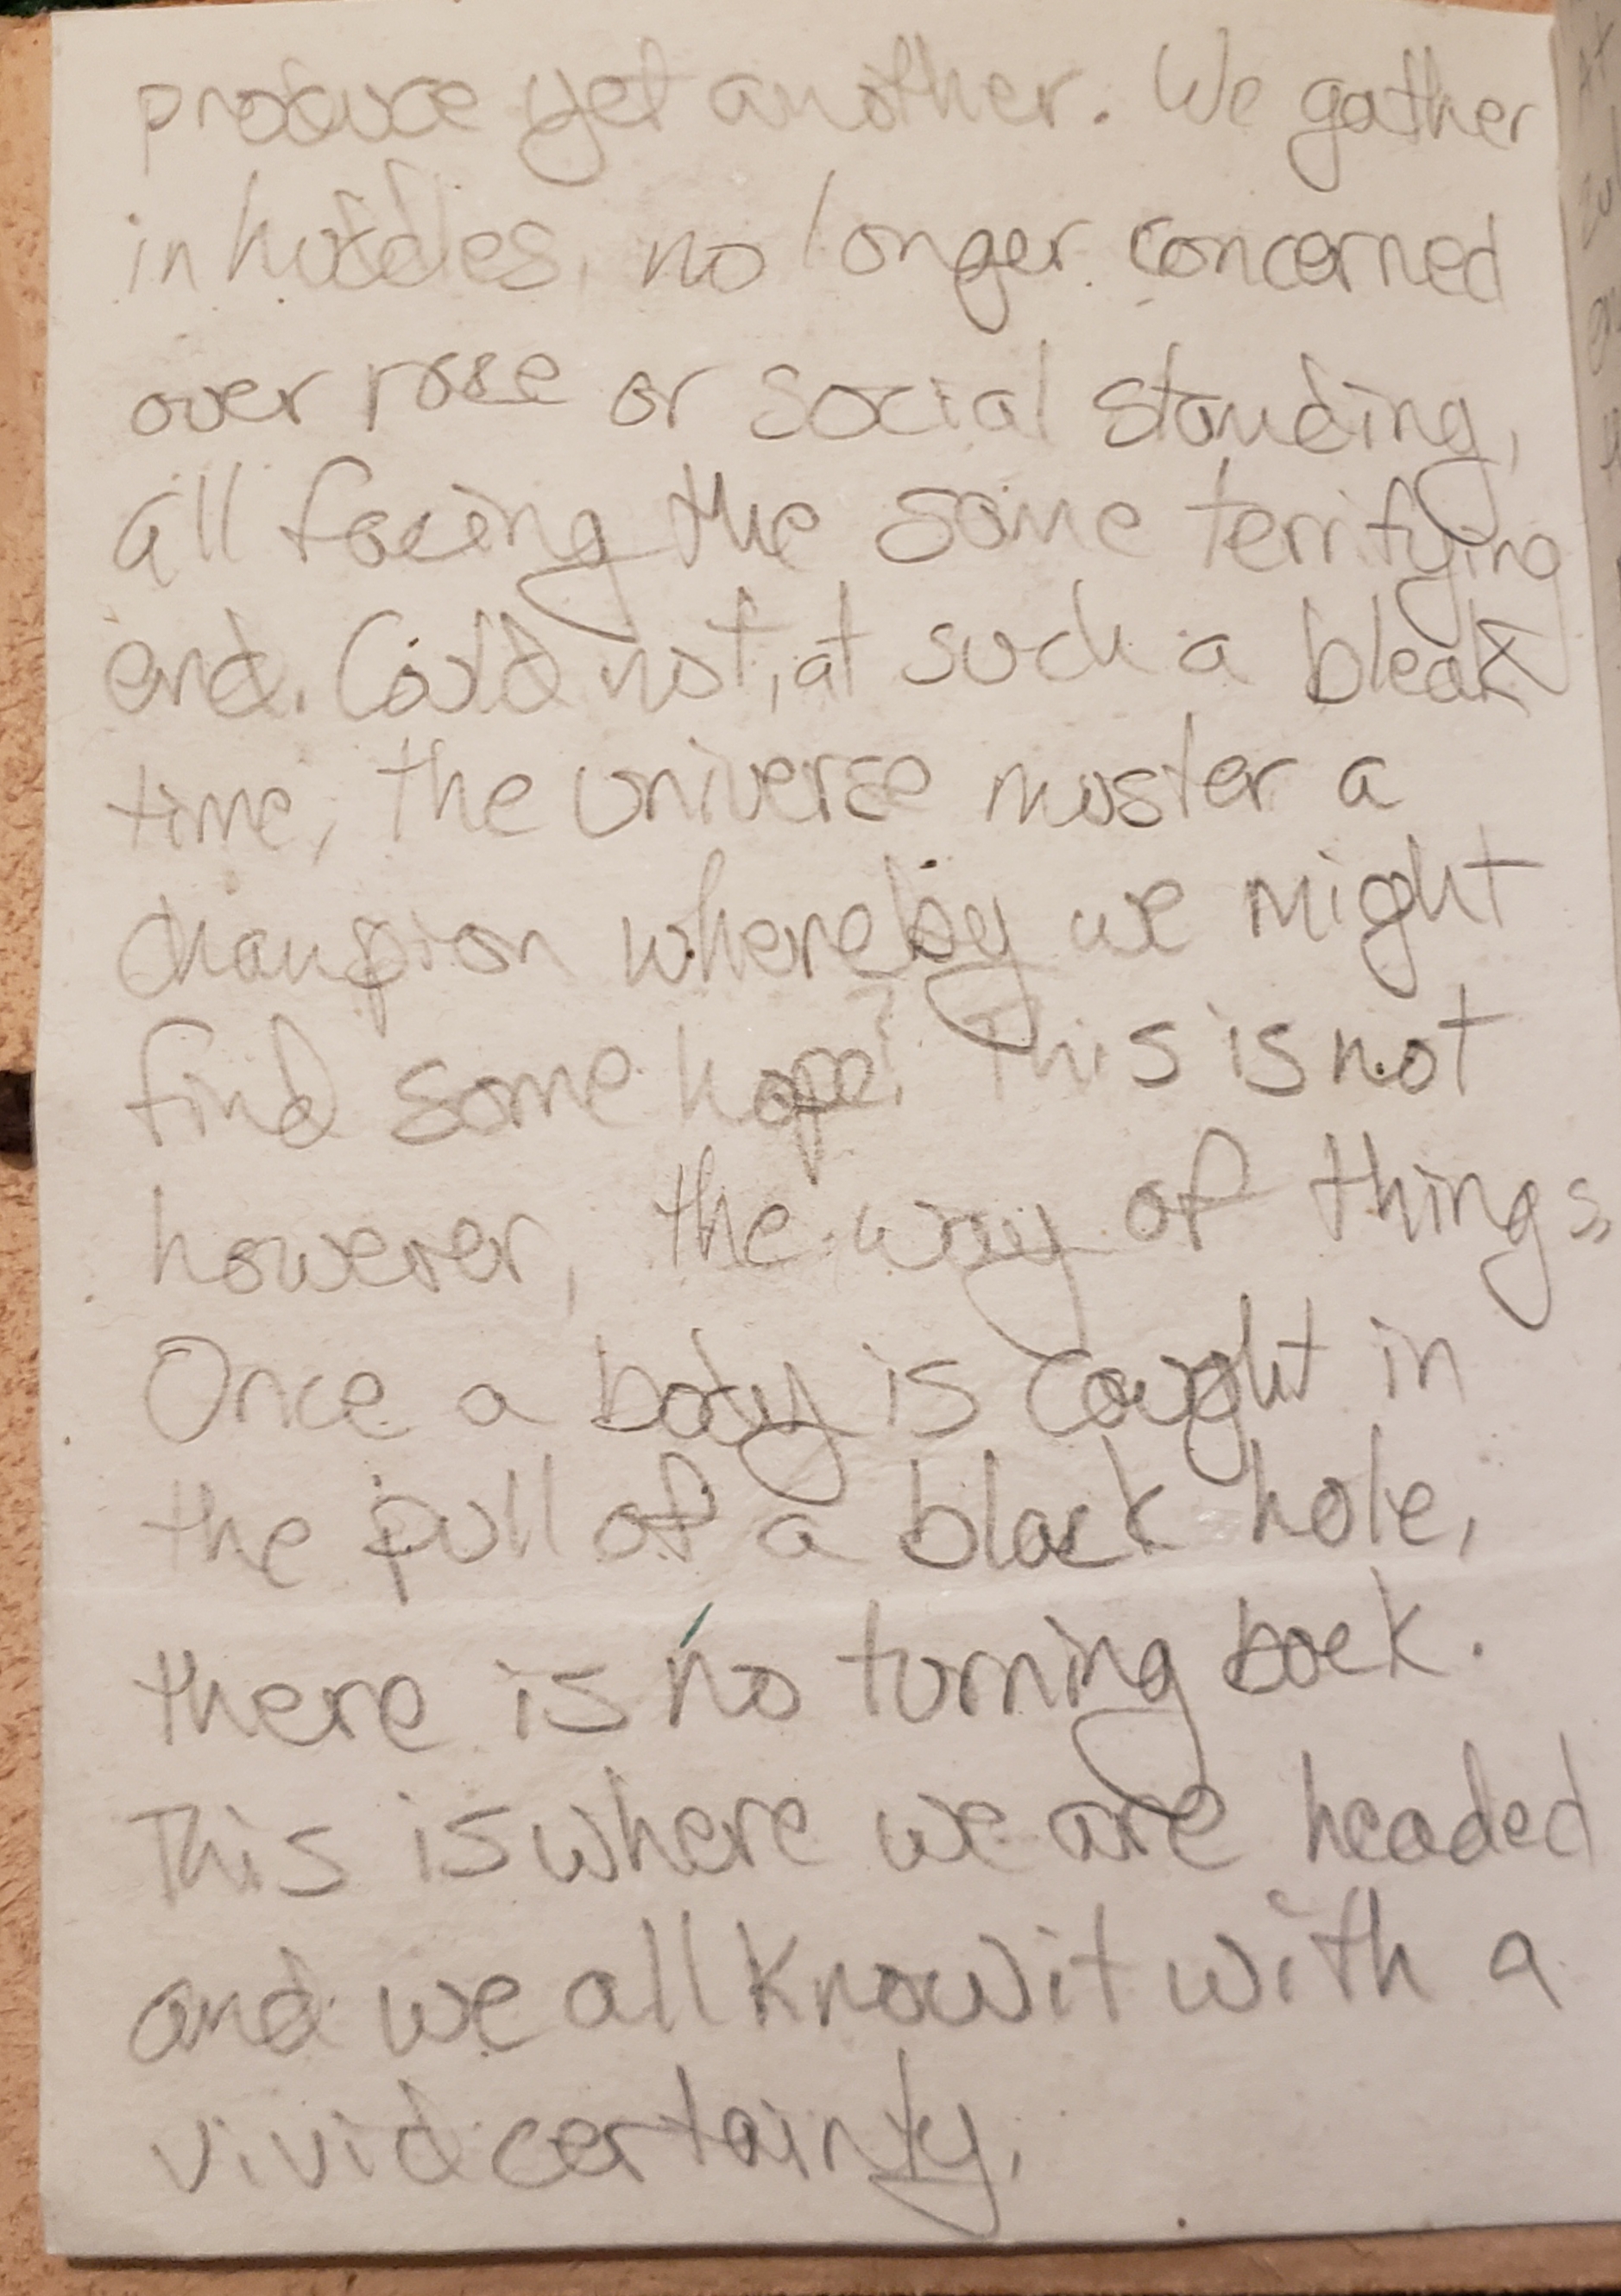 produce yet another. We gather
in huddles, no longer concerned
over race or social standing,
all facing the same terrifying
end. Could not, at such a bleak
time, the universe muster a
champion whereby we might
find some hope? This is not
however, the way of things.
Once a body is caught in
the pull of a black hole,
there is no turning back.
This is where we are headed
and we all know it with a
vivid certainty.